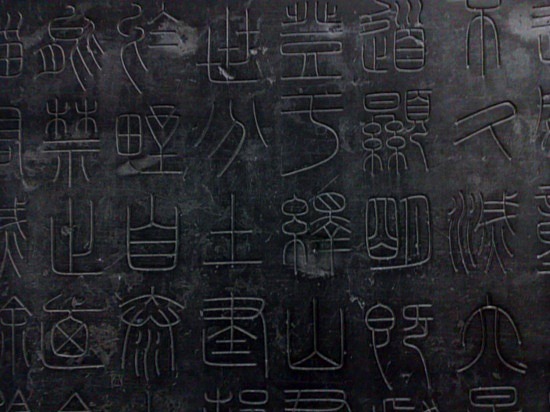 不久滅六
道顯明既
登于繹山
世分土建
於野自泰
能禁止迺
滅除